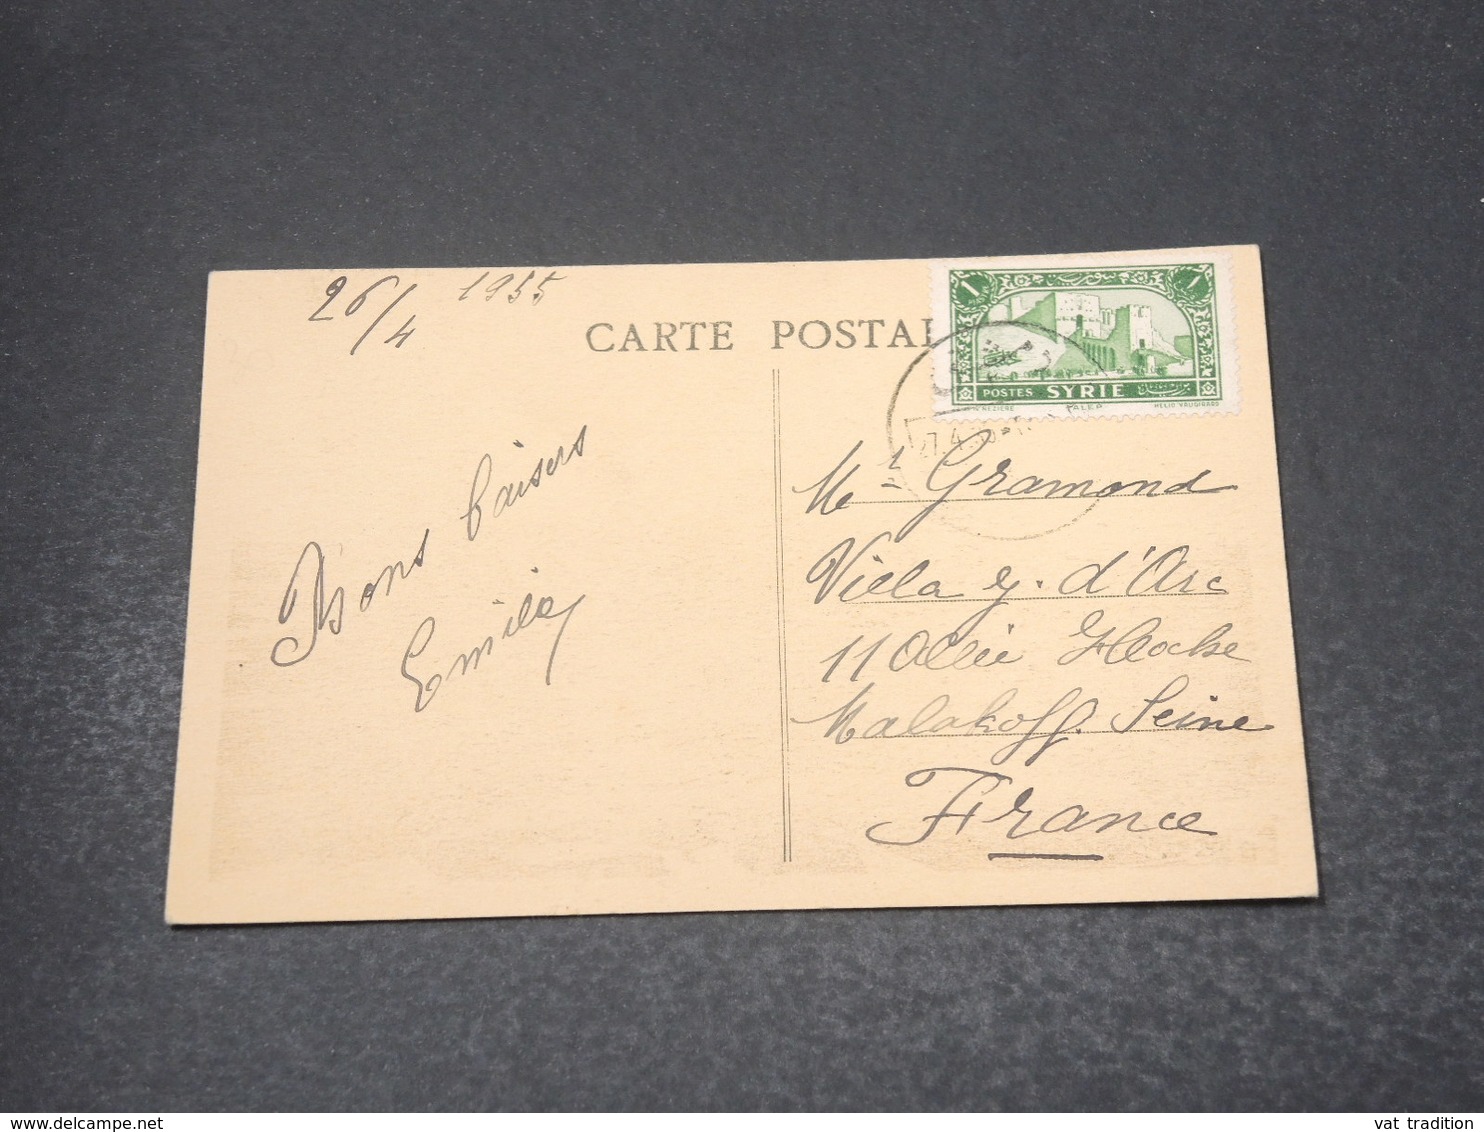 26/4 1955
CARTE POSTAL
1 1
POSTES SYRIE
ALEP HELIO VAUGIRARD
27.4
Bons baisers
Emile
Mr Gramond
Villa J. d'Arc
11 allée Hoche
Malakoff. Seine
France
vat tradition